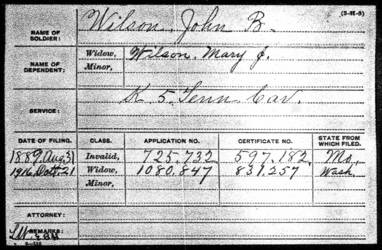 (3-H-8)
NAME OF SOLDIER: Wilson, John B.
NAME OF DEPENDENT: Widow, Wilson, Mary J.
Minor,
SERVICE: K 5 Tenn Cav.
DATE OF FILING. CLASS. APPLICATION NO. CERTIFICATE NO. STATE FROM WHICH FILED.
1889 Aug 31 Invalid, 725.732 597.182 Mo,
1916 Oct. 21 Widow, 1080.847 831257 Wash.
Minor,
ATTORNEY:
REMARKS: